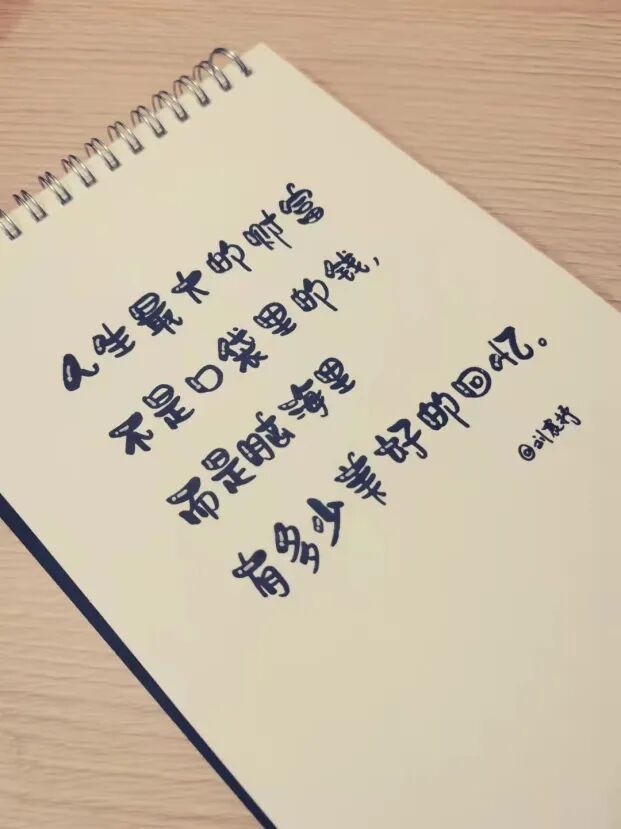 人生最大的财富
不是口袋里的钱,
而是脑海里
有多少美好的回忆。
@刘